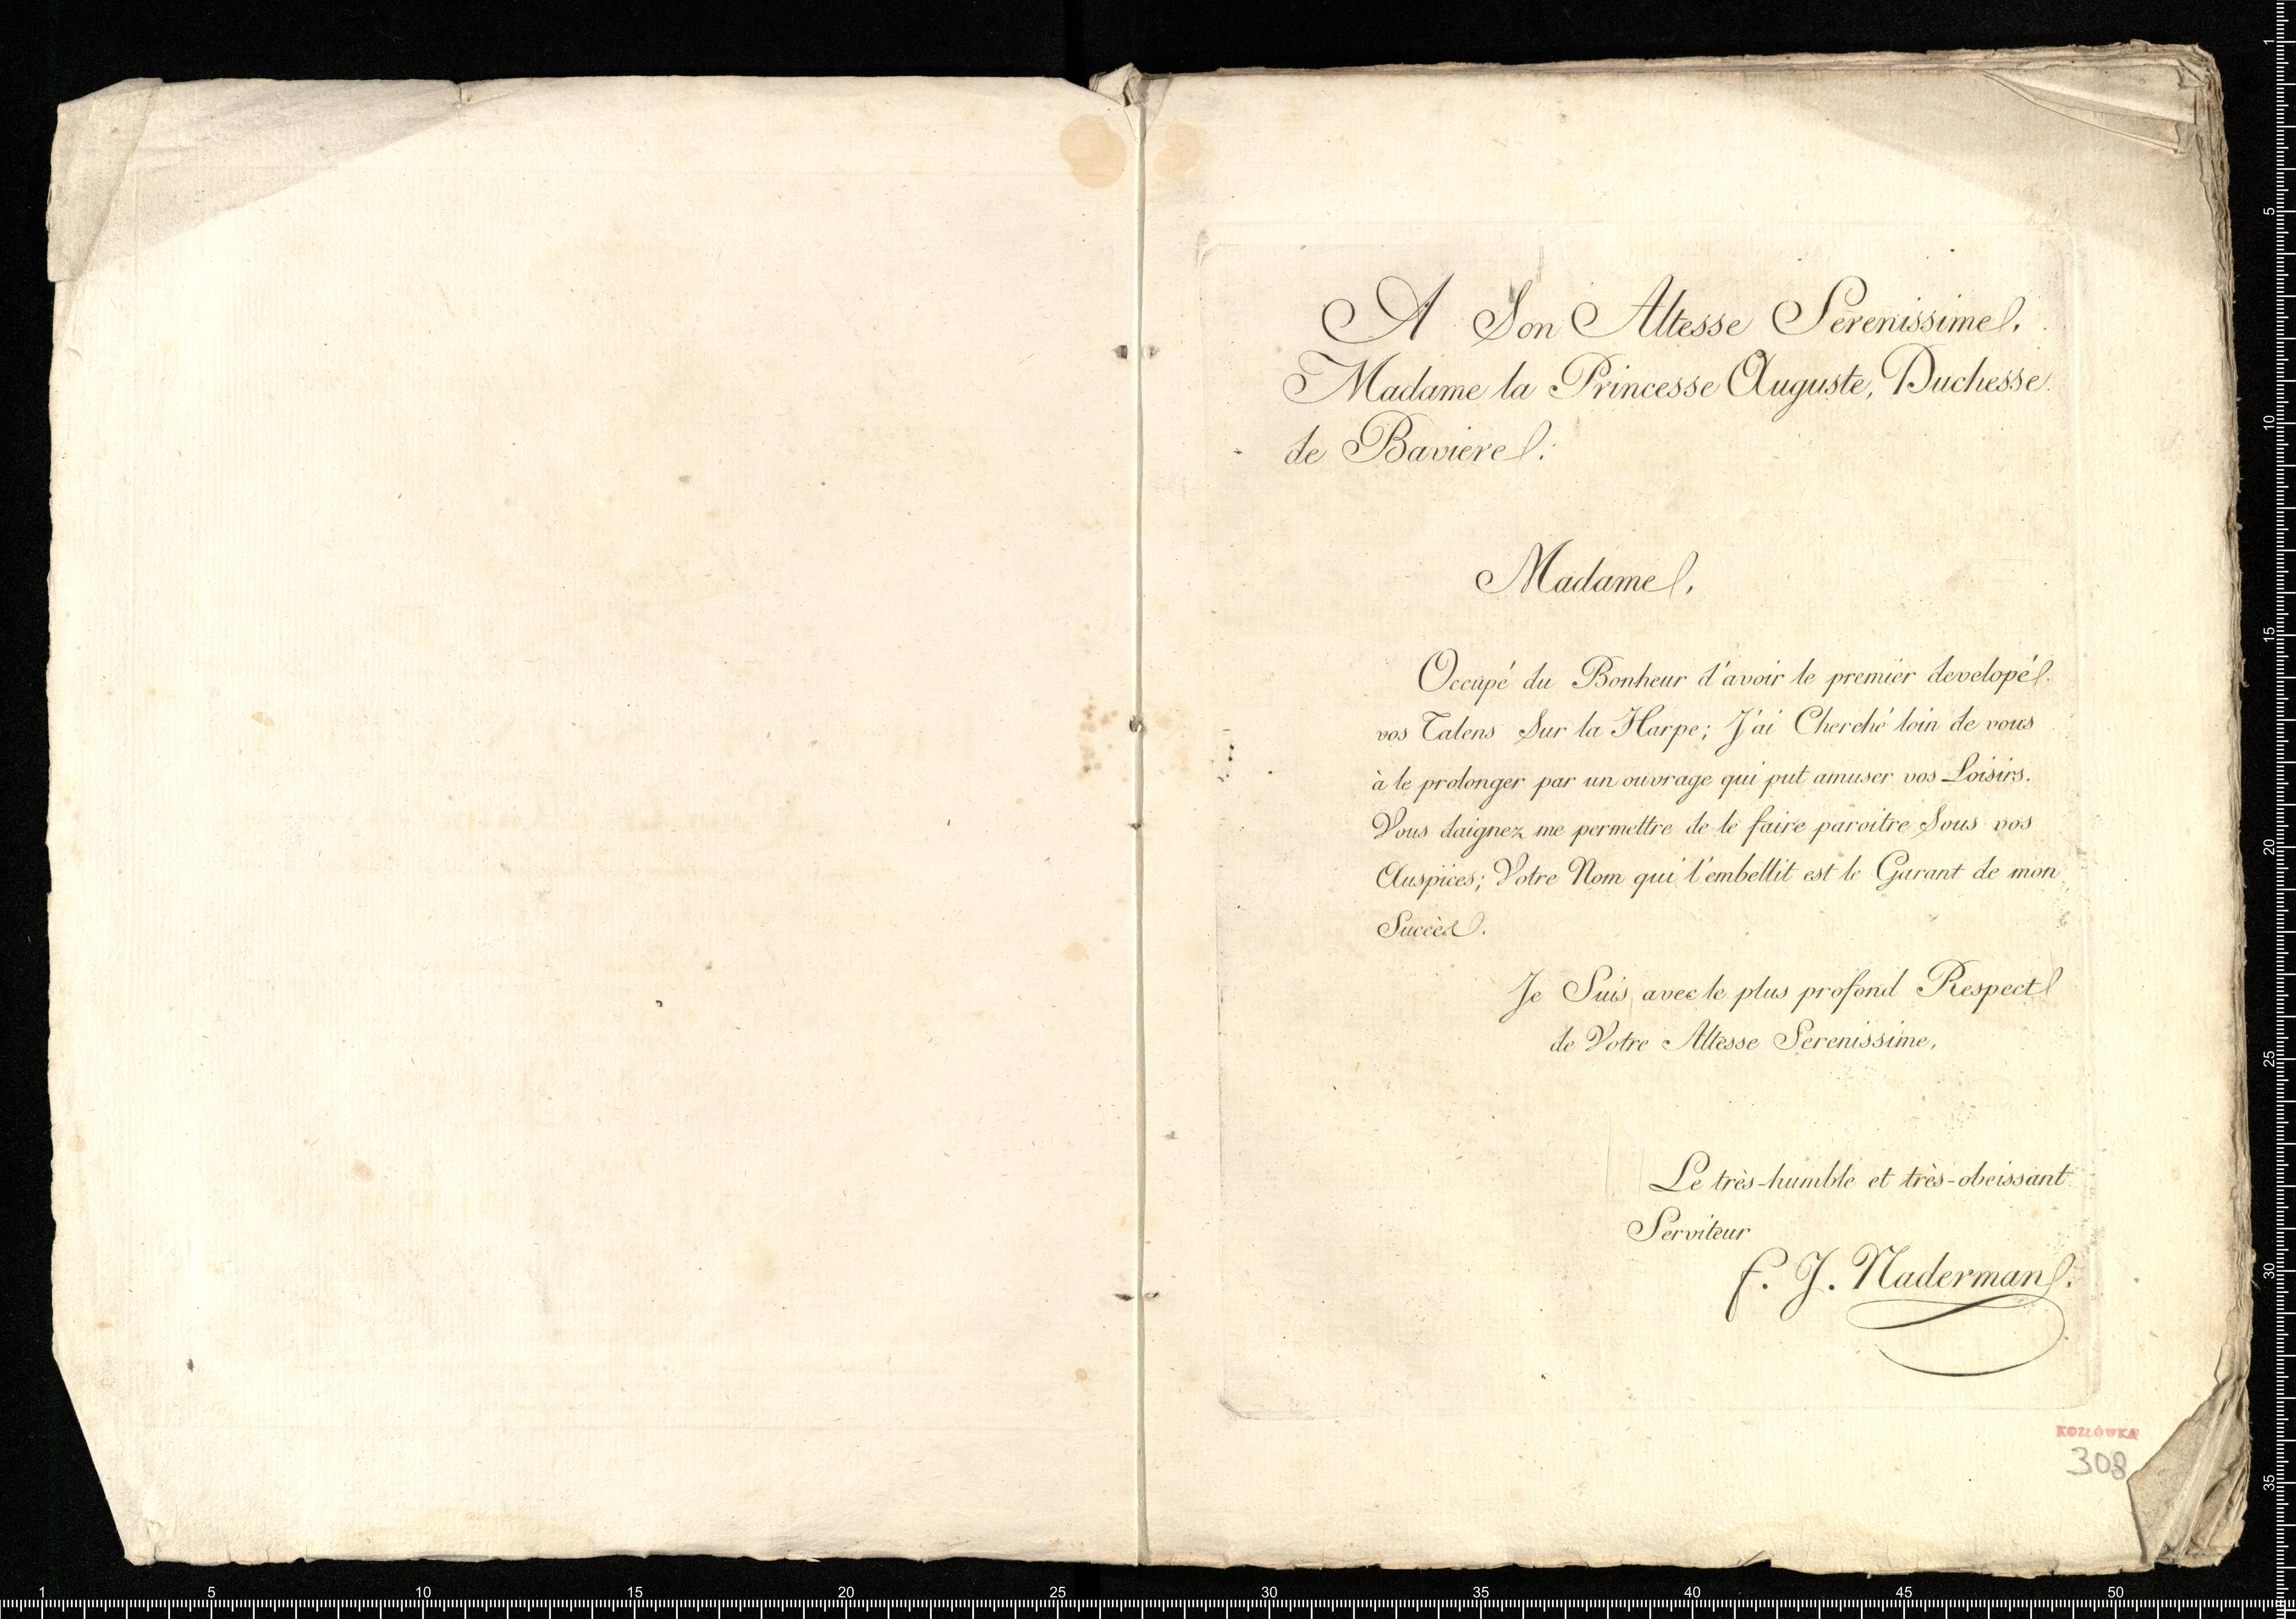 A Son Altesse Serenissime,
Madame la Princesse Auguste, Duchesse
de Baviere.
Madame,
Occupé du Bonheur d'avoir le premier develope
vos Talens Sur la Harpe; J'ai Cherché loin de vous
à le prolonger par un ouvrage qui put amuser vos Loisirs.
Vous daignez me permettre de le faire paroitre Sous vos
Auspices; Votre Nom qui l'embellit est le Garant de mon
Succès.
Je Suis avec le plus profond Respect
de Votre Altesse Serenissime,
Le très-humble et très-obeissant
Serviteur
F. J. Naderman.
KOZŁÓWKA
308
1 5 10 15 20 25 30 35 40 45 50
1
5
10
15
20
25
30
35